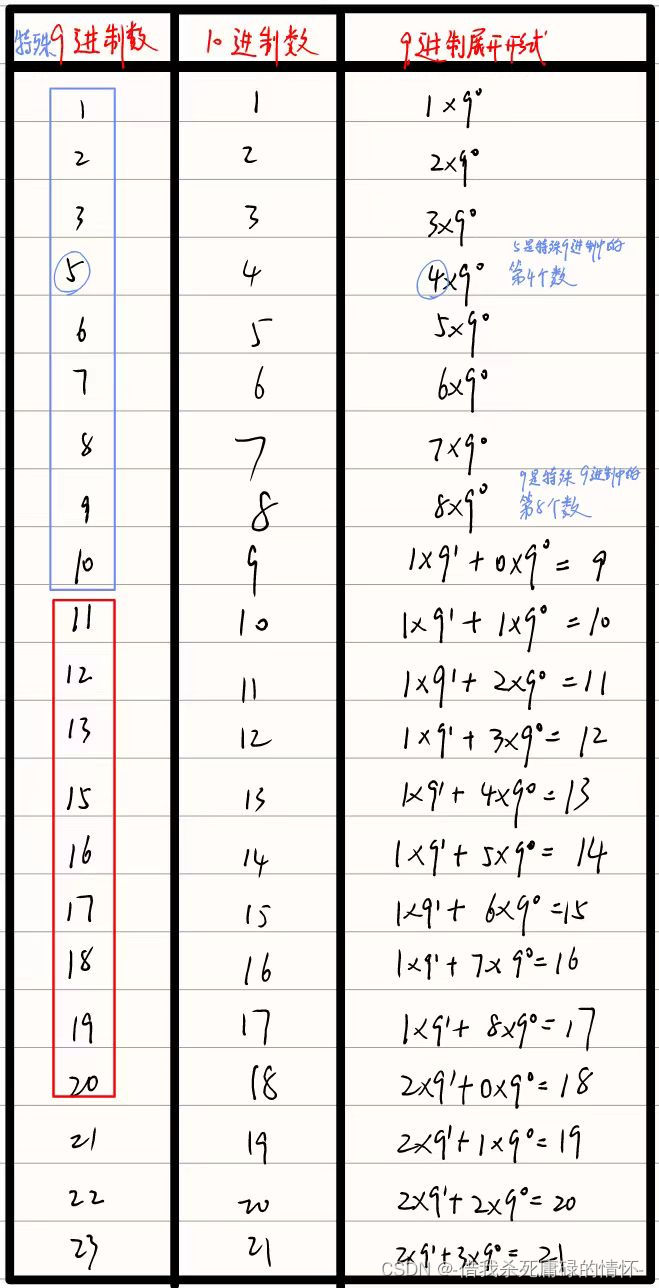 特殊9进制数 10进制数 9进制展开形式
1 1 1×9⁰
2 2 2×9⁰
3 3 3×9⁰
5是特殊9进制中的
5 4 4×9⁰ 第4个数
6 5 5×9⁰
7 6 6×9⁰
8 7 7×9⁰
9是特殊9进制中的
9 8 8×9⁰ 第8个数
10 9 1×9¹+0×9⁰=9
11 10 1×9¹+1×9⁰=10
12 11 1×9¹+2×9⁰=11
13 12 1×9¹+3×9⁰=12
15 13 1×9¹+4×9⁰=13
16 14 1×9¹+5×9⁰=14
17 15 1×9¹+6×9⁰=15
18 16 1×9¹+7×9⁰=16
19 17 1×9¹+8×9⁰=17
20 18 2×9¹+0×9⁰=18
21 19 2×9¹+1×9⁰=19
22 20 2×9¹+2×9⁰=20
23 21 2×9¹+3×9⁰=21
CSDN @-借我杀死庸碌的情怀-